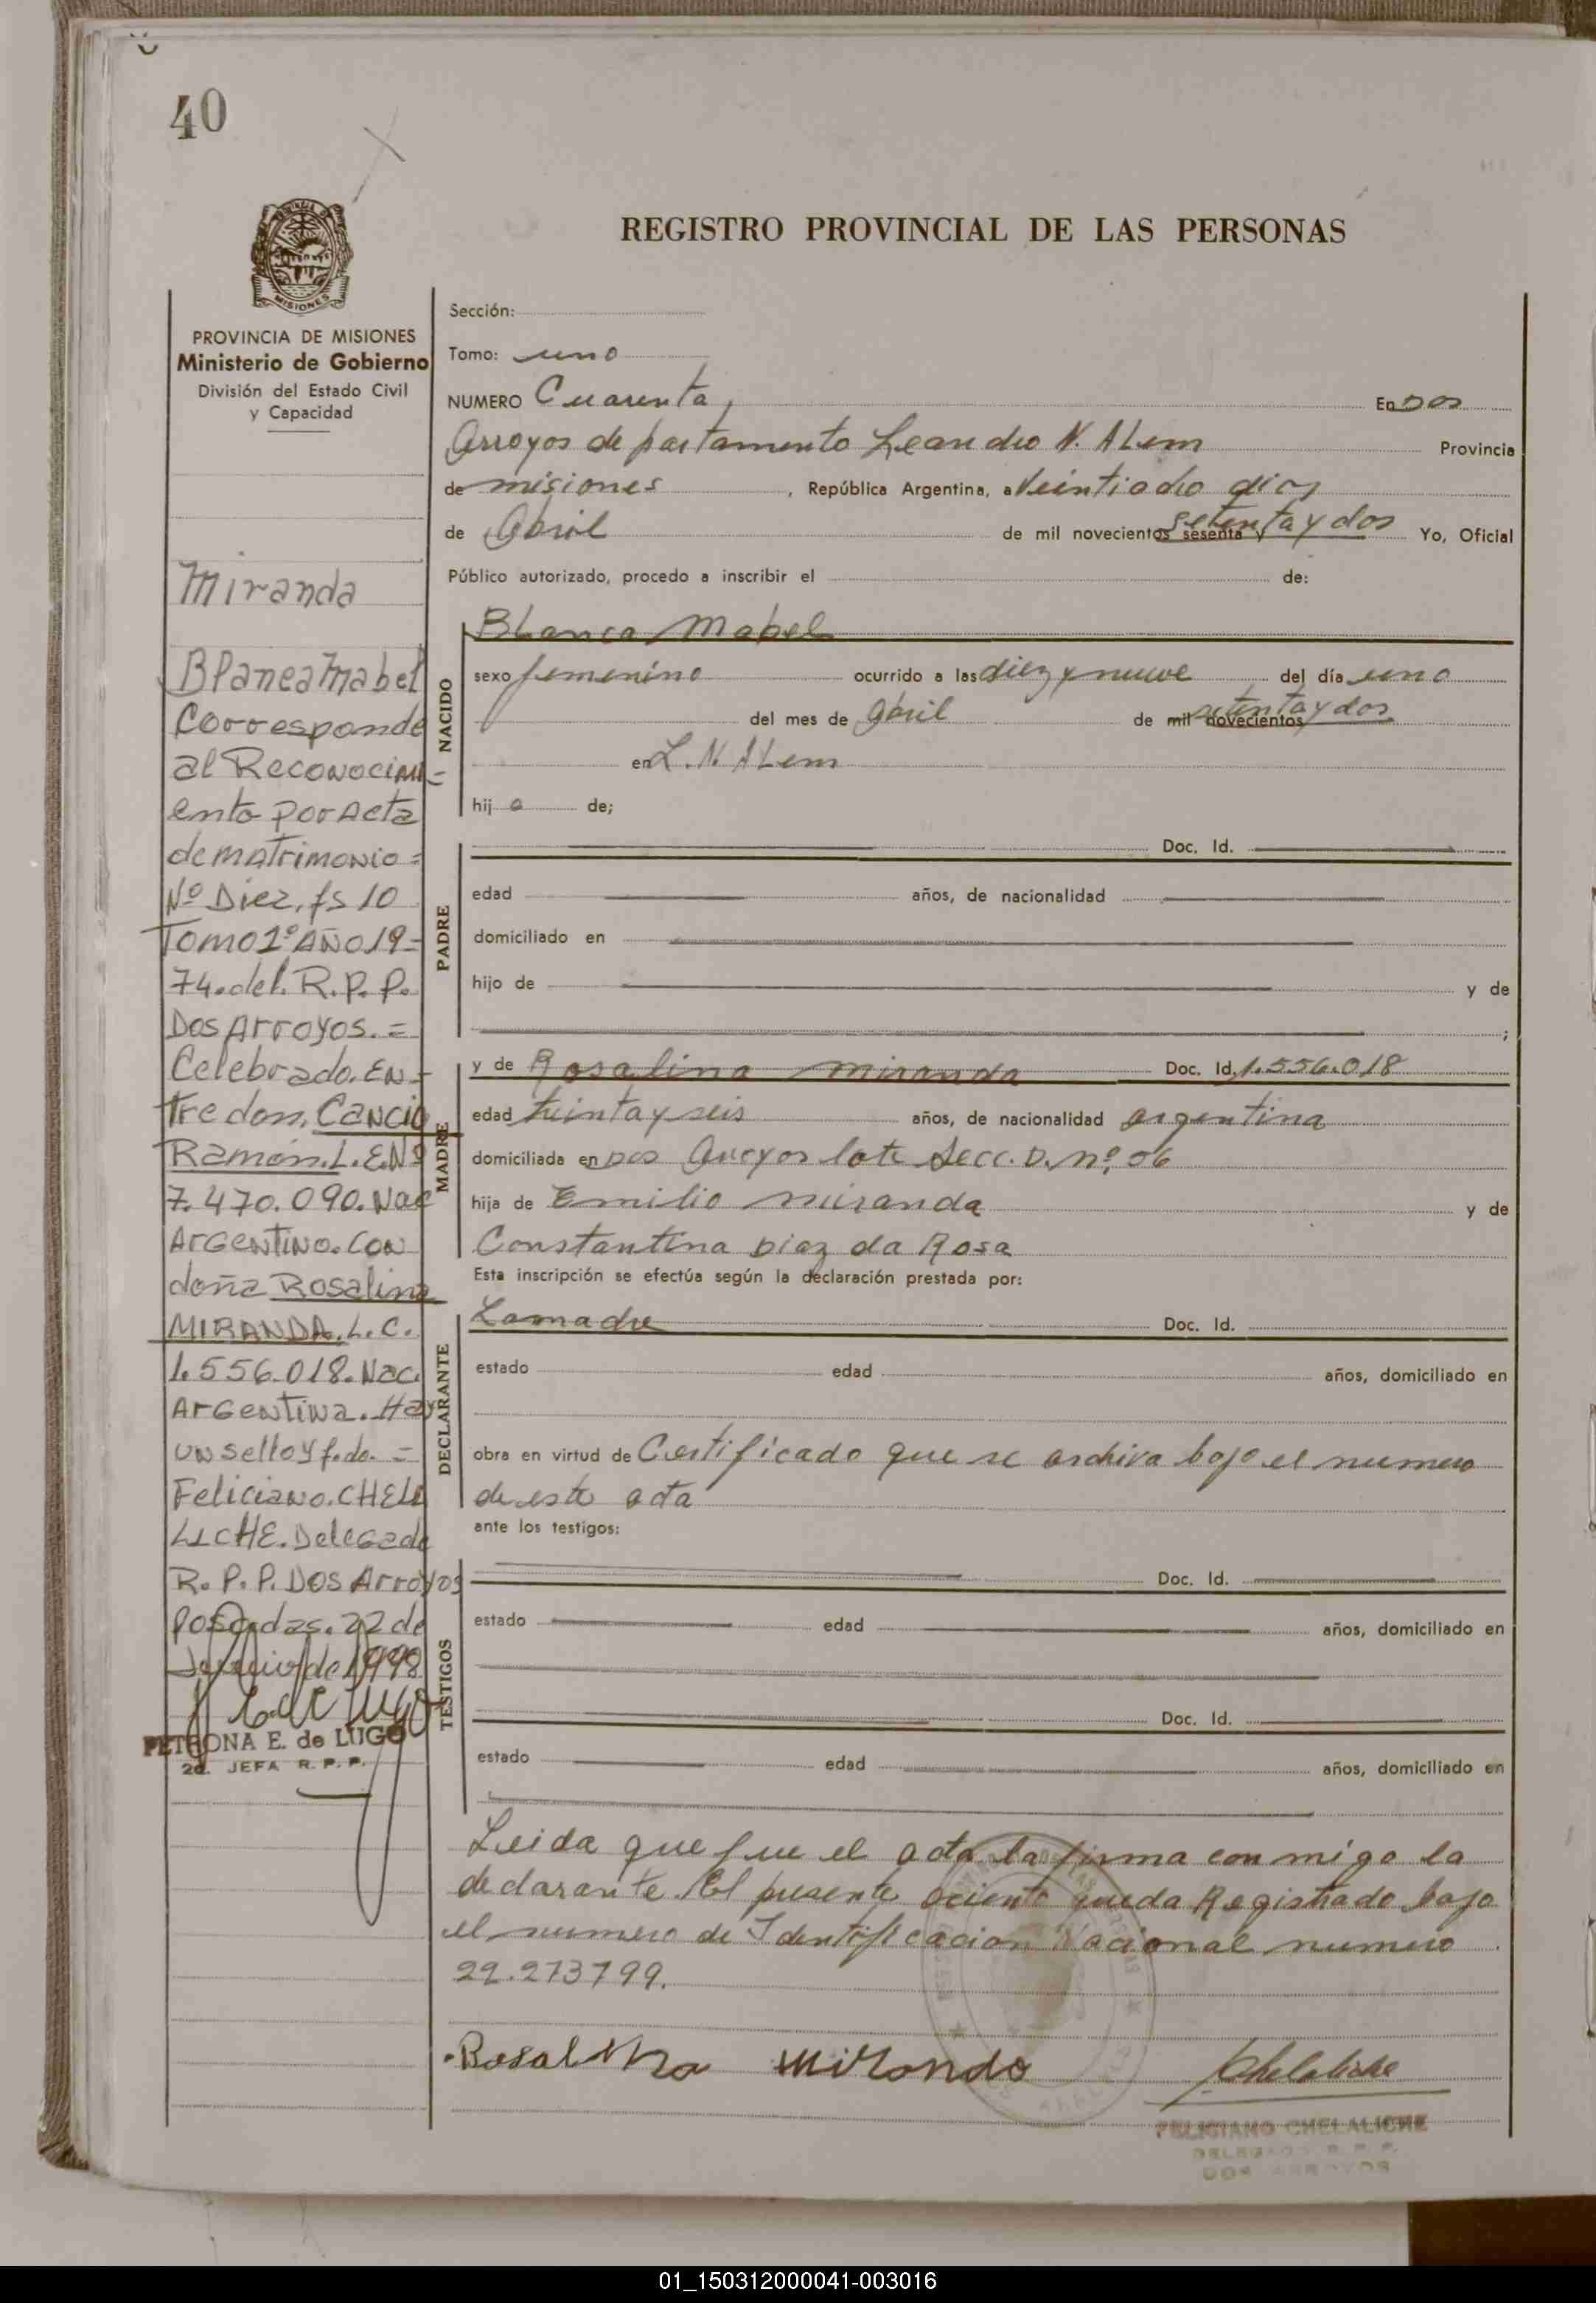 40
MISIONES
PROVINCIA DE MISIONES
Ministerio de Gobierno
División del Estado Civil
y Capacidad
Miranda
Blanca Mabel
Corresponde
al Reconocimi=
ento por Acta
de matrimonio=
Nº Diez, fs 10
Tomo 1º AÑO 19=
74. del. R. P. P.
Dos Arroyos. =
Celebrado. EN=
tre don. Cancio
Ramón. L. E. Nº
7.470.090. Nac
Argentino. con
doña Rosalina
MIRANDA. L. C.
1.556.018. Nac.
Argentina. Hay
un sello y fdo. =
Feliciano. CHELA
LICHE. Delegado
R. P. P. Dos Arroyos
Posadas. 22 de
de 1998
PETRONA E. de LUGO
2a. JEFA R. P. P.
REGISTRO PROVINCIAL DE LAS PERSONAS
Sección:
Tomo: uno
NUMERO Cuarenta, En Dos
Arroyos departamento Leandro N. ALem Provincia
de misiones, República Argentina, a Veintiocho dias
de Abril de mil novecientos sesenta y setenta y dos Yo, Oficial
Público autorizado, procedo a inscribir el de:
NACIDO
BLanca Mabel
sexo femenino ocurrido a las diez y nueve del día uno
del mes de Abril de mil novecientos setenta y dos
en L. N. ALem
hija de;
PADRE
Doc. Id.
edad años, de nacionalidad
domiciliado en
hijo de y de
;
MADRE
y de Rosalina miranda Doc. Id. 1.556.018
edad treinta y seis años, de nacionalidad argentina
domiciliada en Dos Arroyos lote Secc. D. nº. 06
hija de Emilio miranda y de
Constantina Diaz da Rosa
Esta inscripción se efectúa según la declaración prestada por:
DECLARANTE
La madre Doc. Id.
estado edad años, domiciliado en
obra en virtud de Certificado que se archiva bajo el numero
de este acta
ante los testigos:
TESTIGOS
Doc. Id.
estado edad años, domiciliado en
Doc. Id.
estado edad años, domiciliado en
Leida que fue el acta la firma con migo la
declarante El presente aciento queda Registrado bajo
el numero de Identificacion Nacional numero
22.273799.
Rosalina Mirando
Chelaliche
FELICIANO CHELALICHE
DELEGADO R. P. P.
DOS ARROYOS
01_150312000041-003016